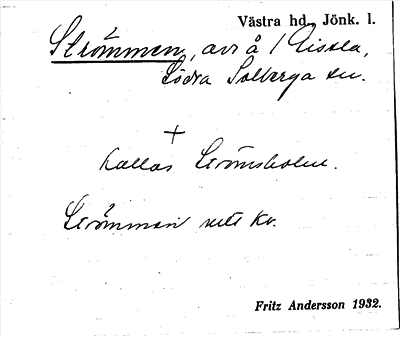 Västra hd., Jönk. l.
Strömmen, avs å i Gissla,
Södra Solberga sn.
+
Kallas Strömsholm.
Strömman nett kv.
Fritz Andersson 1932.